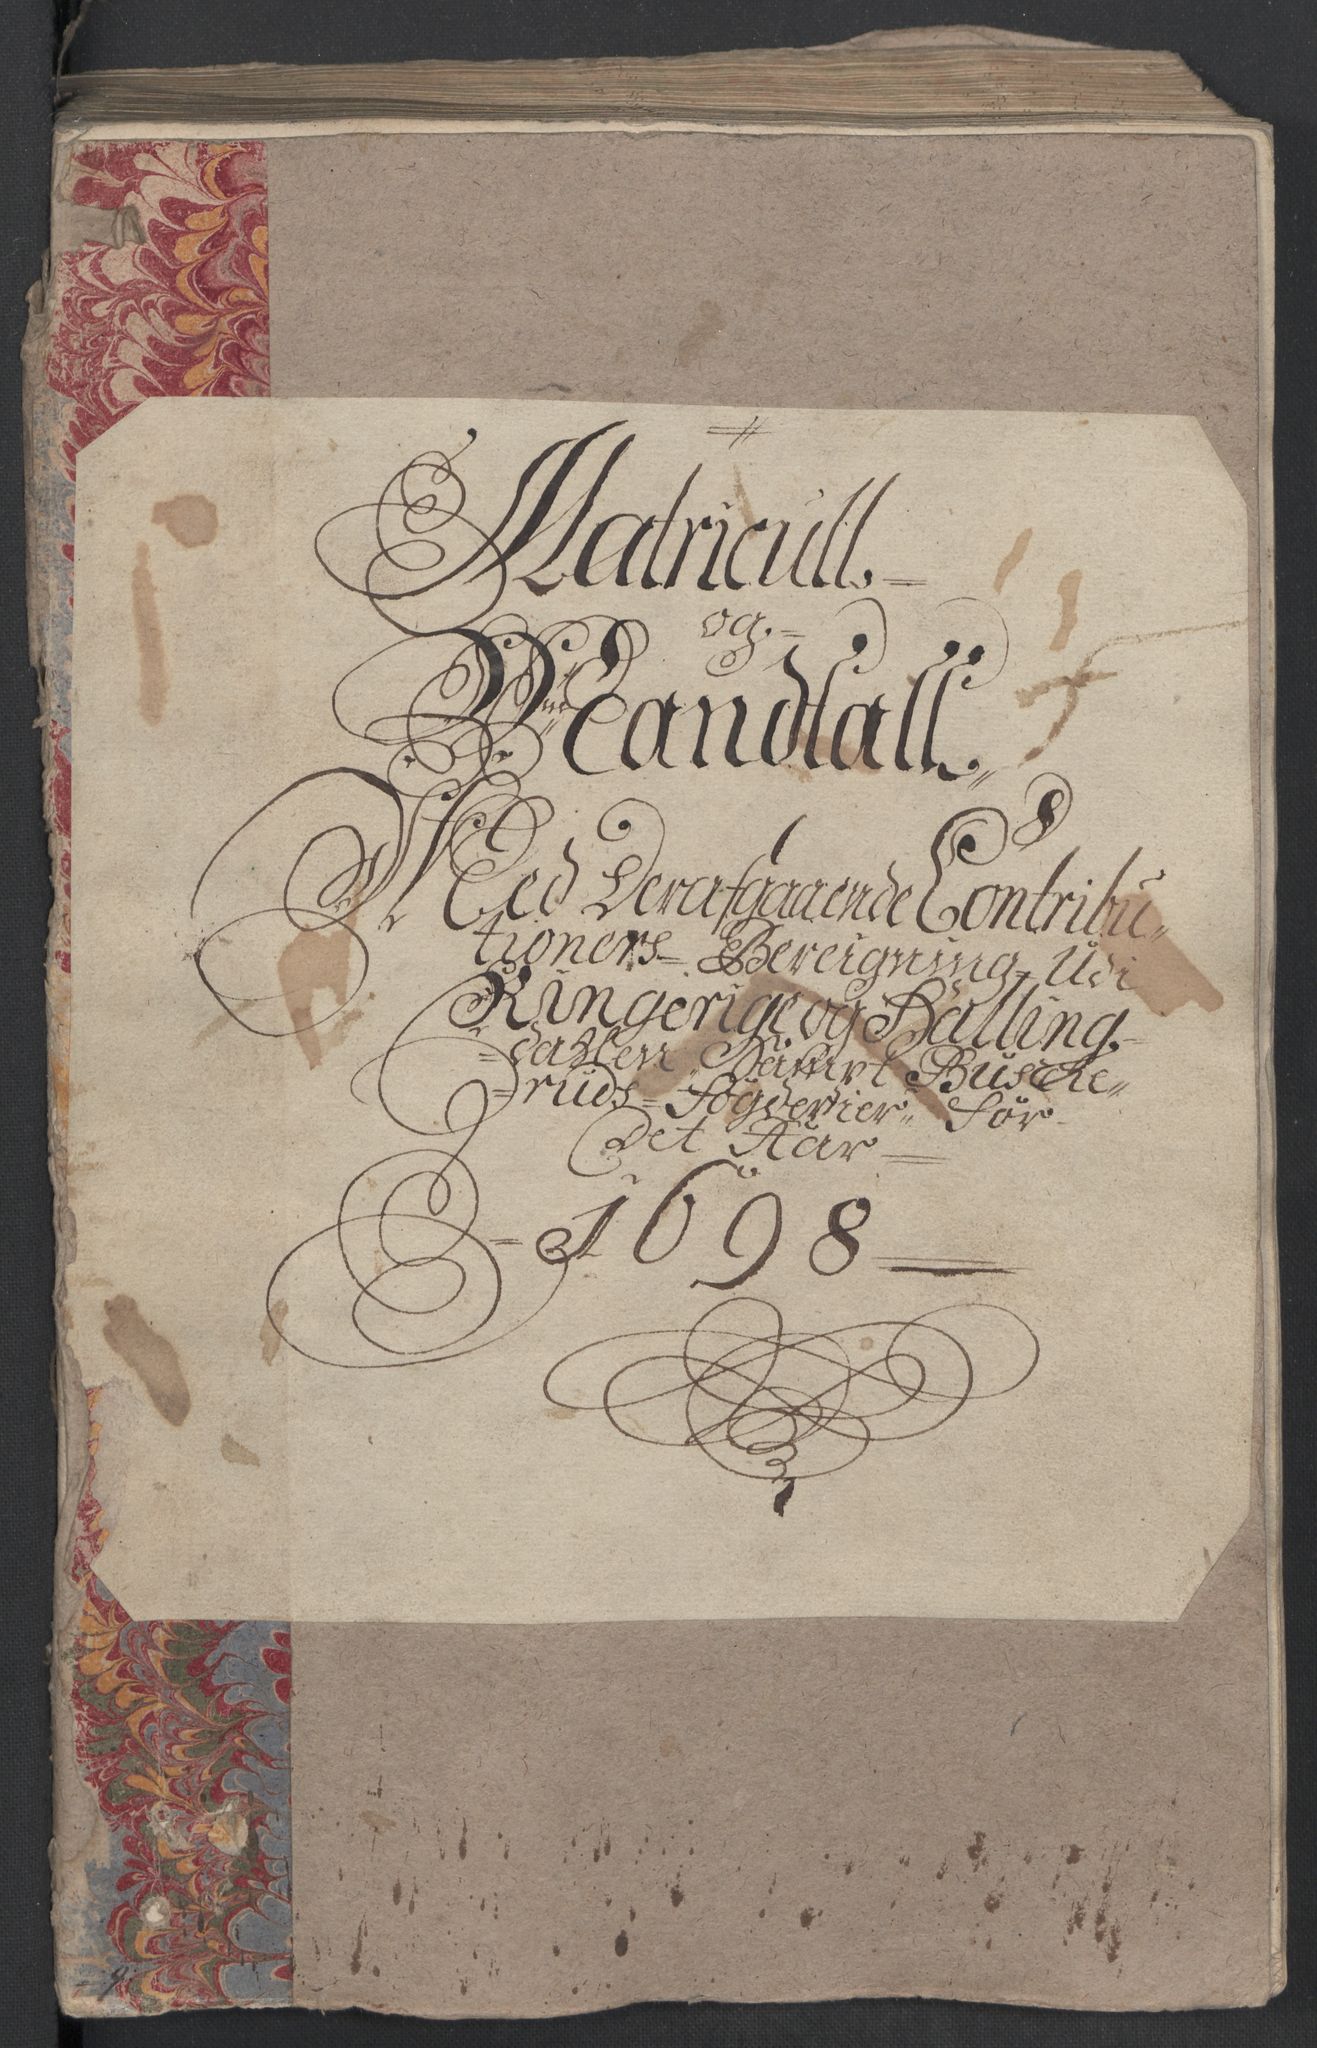 Matricull.
og.
Mandtall.
Med Derafgaaende Contribu-
tioners Bereigning Udi
Ringerige og Halling-
dahlen Sampt Busche-
ruds Fogderier for
Det Aar
1698
9